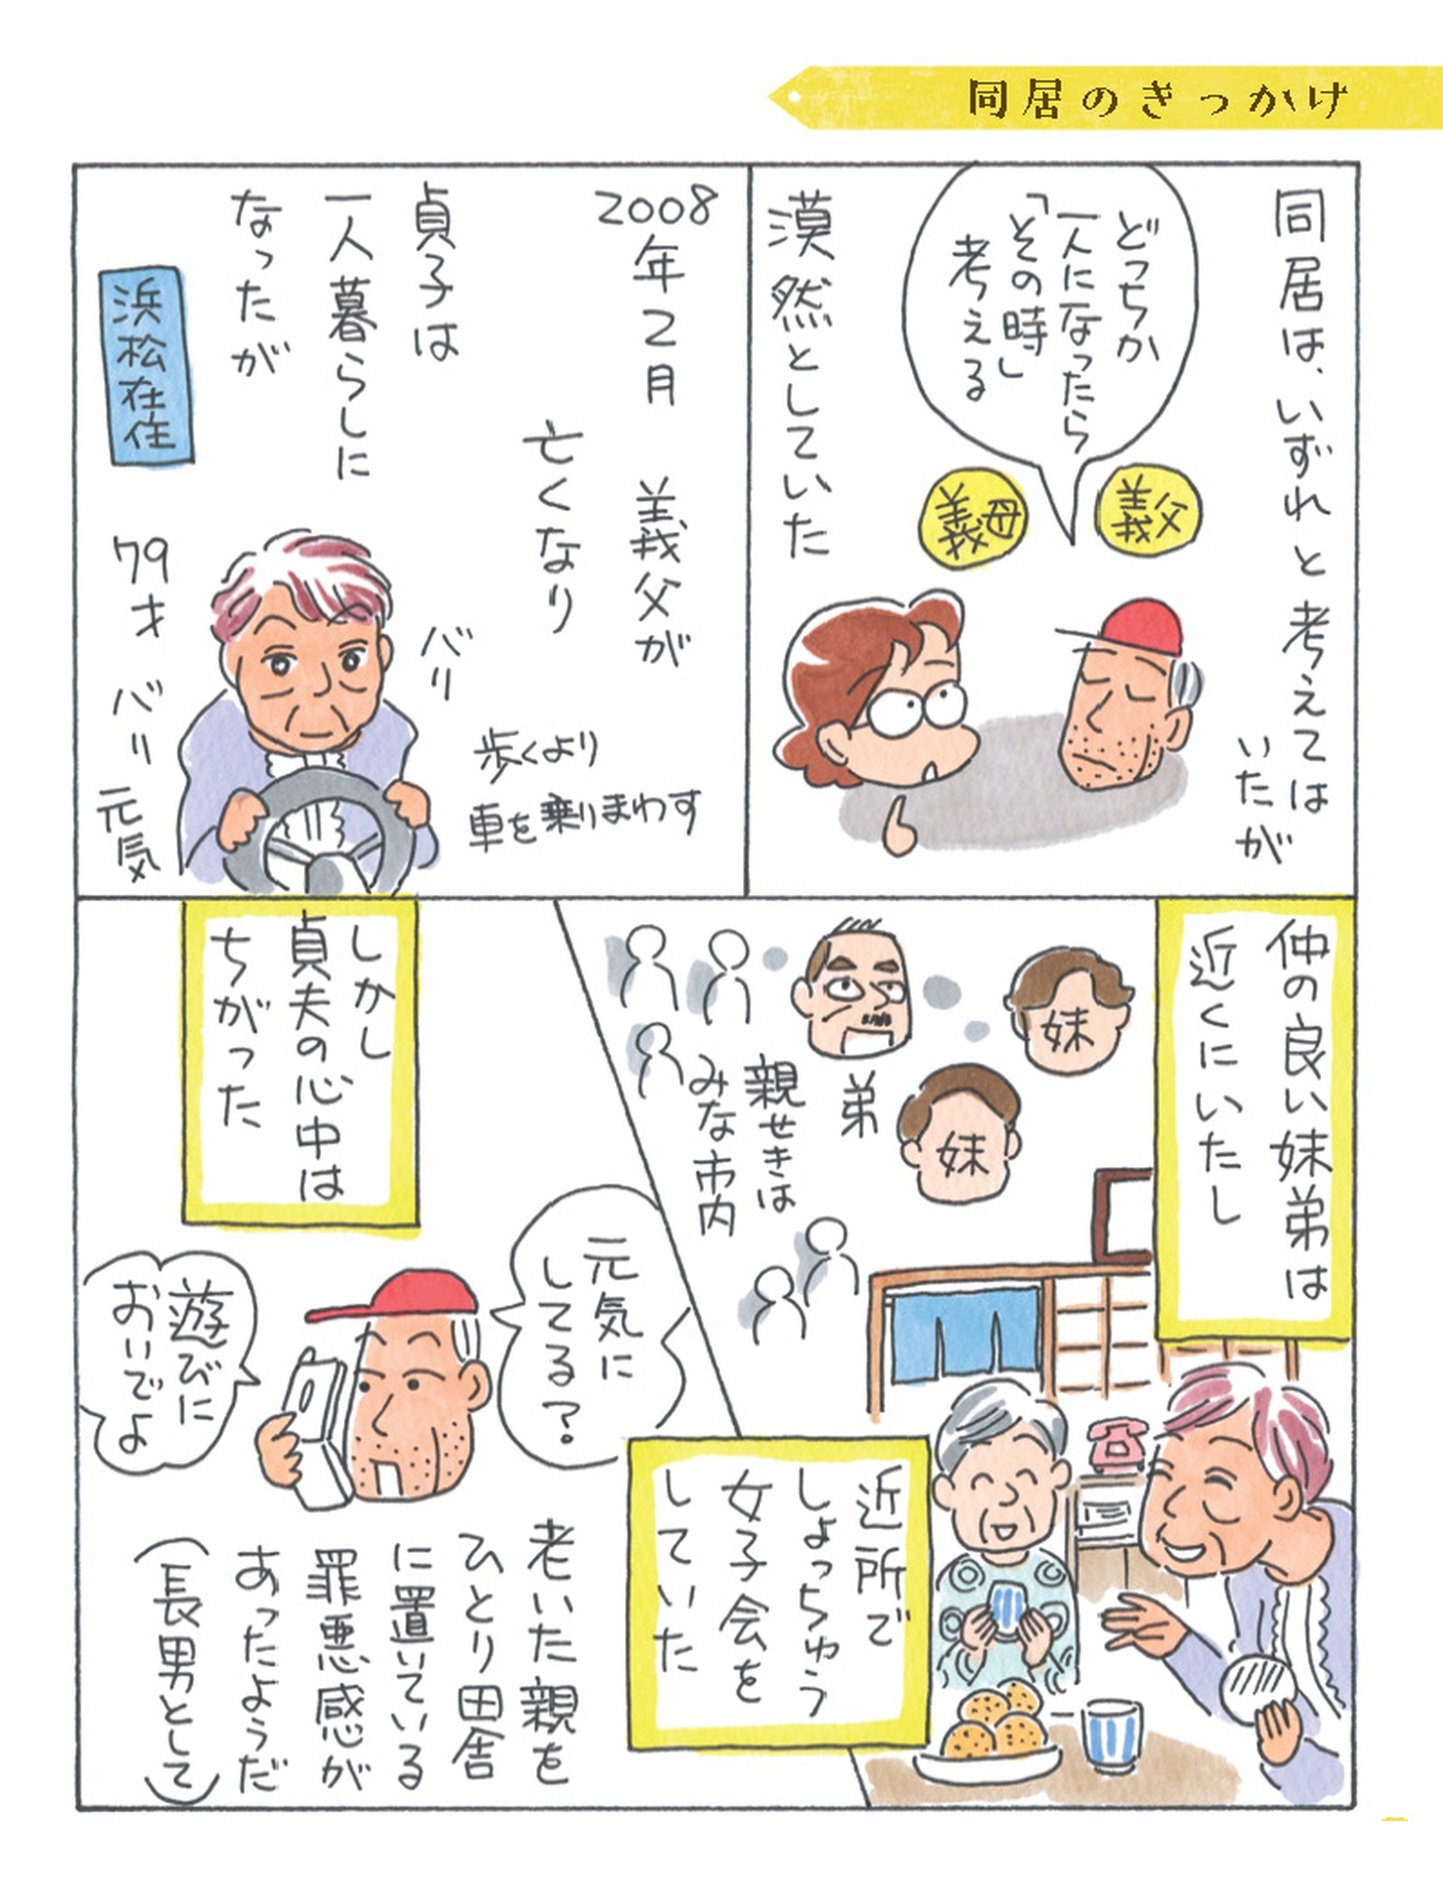 同居のきっかけ
同居は、いずれと考えては
いたが
どっちか
一人になったら
「その時」
考える
義父
義母
漠然としていた
2008年2月 義父が
亡くなり
貞子は
一人暮らしに
なったが
浜松在住
79才 バリバリ元気
歩くより
車を乗りまわす
仲の良い妹弟は
近くにいたし
妹
妹
弟
親せきは
みな市内
近所で
しょっちゅう
女子会を
していた
しかし
貞夫の心中は
ちがった
元気に
してる?
遊びに
おいでよ
老いた親を
ひとり田舎
に置いている
罪悪感が
あったようだ
(長男として)